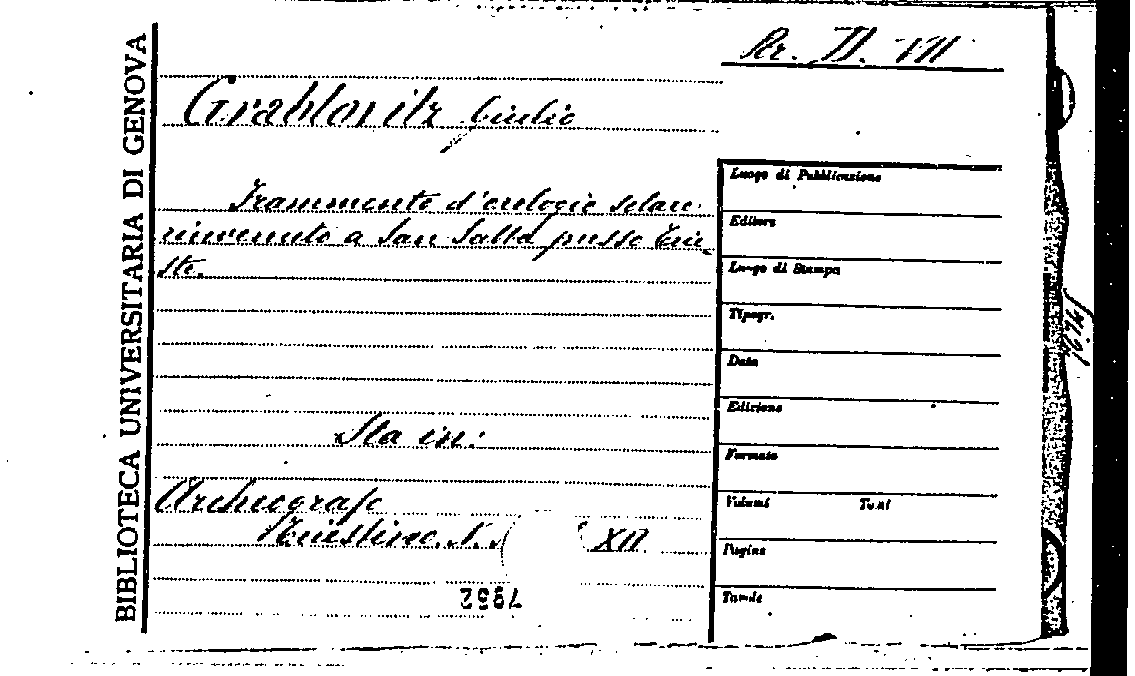 BIBLIOTECA UNIVERSITARIA DI GENOVA
Rr. II. VII
Grablovitz Giulio
Frammento d'orologio solare
rinvenuto a San Sabba presso Trie
ste.
Sta in:
Archeografo
Triestino. N. S
XII
7952
Luogo di Pubblicazione
Editore
Luogo di Stampa
Tipogr.
Data
Edizione
Formato
Volumi Tomi
Pagine
Tavole